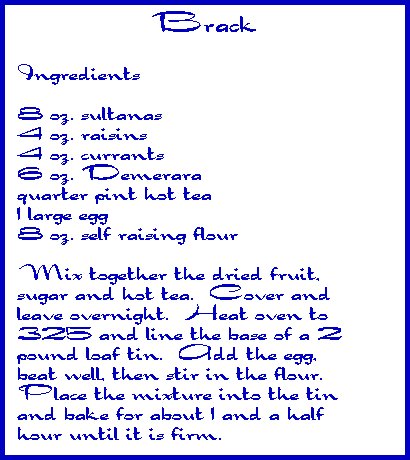 Brack
Ingredients
8 oz. sultanas
4 oz. raisins
4 oz. currants
6 oz. Demerara
quarter pint hot tea
1 large egg
8 oz. self raising flour
Mix together the dried fruit,
sugar and hot tea. Cover and
leave overnight. Heat oven to
325 and line the base of a 2
pound loaf tin. Add the egg,
beat well, then stir in the flour.
Place the mixture into the tin
and bake for about 1 and a half
hour until it is firm.